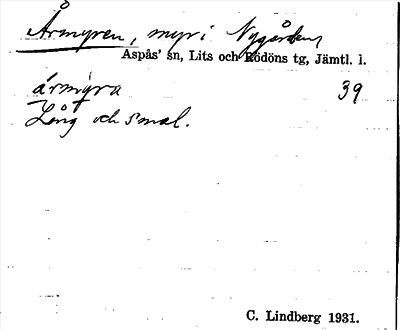 Årmyren, myr i Nygården
Aspås' sn, Lits och Rödöns tg, Jämtl. l.
årmýra 39
Lång och smal.
C. Lindberg 1931.